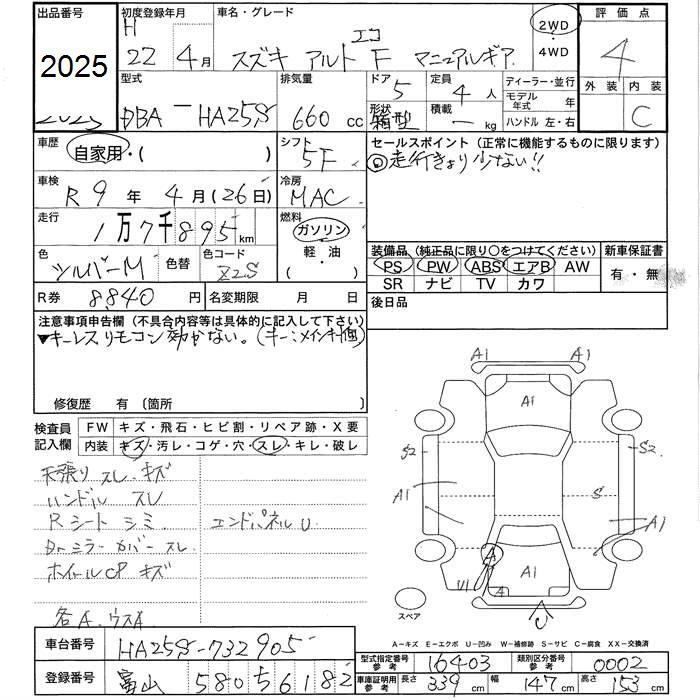 出品番号 初度登録年月 車名・グレード 評価点
2025 H 22 4月 スズキ アルト エコ F マニュアルギア 2WD ・ 4WD 4
2025
型式 排気量 ドア 定員 ディーラー・並行 外装 内装
DBA-HA25S 660 cc 5 4人 モデル年式 年 C
形状 箱型 積載 - kg ハンドル 左・右
車歴 自家用・( ) シフト 5F
セールスポイント(正常に機能するものに限ります)
◎走行きょり少ない!!
車検 R 9年 4月(26日) 冷房 MAC
走行 1万7千895km 燃料 ガソリン・軽・油 ( )
色 シルバーM 色替 色コード Z2S
装備品(純正品に限り○をつけてください) 新車保証書
PS PW ABS エアB AW 有・無
SR ナビ TV カワ
R券 8840円 名変期限 月 日 後日品
注意事項申告欄(不具合内容等は具体的に記入して下さい)
▼キーレスリモコン効かない。(キー:メインキー1個)
修復歴 有(箇所
検査員記入欄 FW キズ・飛石・ヒビ割・リペア跡・X要
内装 キズ・汚レ・コゲ・穴・スレ・キレ・破レ
天張り スレ・キズ
ハンドル スレ
Rシート シミ エンドパネルU
Drミラーカバー スレ
ホイールCP キズ
各A.ウスA
A1 A1
A1
S2 S2
A1 S A1
A
U1 4 A1
U
スペア
A−キズ E−エクボ U−凹み W−補修跡 S−サビ C−腐食 XX−交換済
車台番号 HA25S-732905
登録番号 富山 580 ち 6182
型式指定番号 参考 16403 類別区分番号 参考 0002
車庫証明用 参考 長さ 339cm 幅 147cm 高さ 153cm